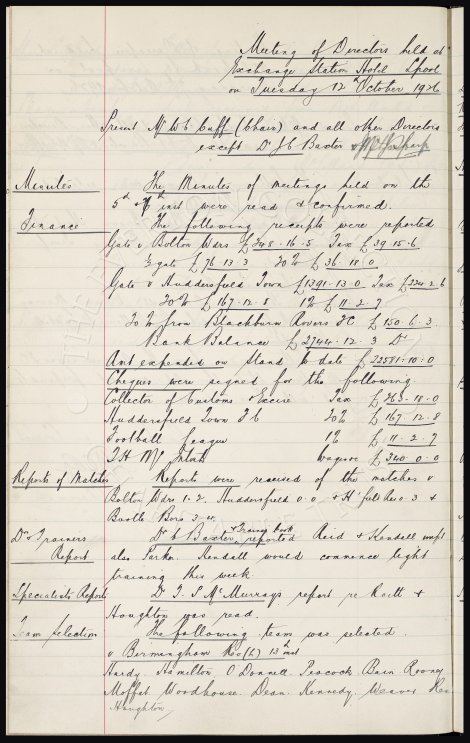 Meeting of Directors held at
Exchange Station Hotel Lpool
on Tuesday 12th October 1926
Present Mr W C Cuff (Chair) and all other Directors
except Dr J C Baxter & Mr Sharp
Minutes The Minutes of meetings held on the
5th & 7th inst were read & confirmed.
Finance The following receipts were reported
Gate v Bolton Wdrs £348-16-5 Tax £39-15-6
½ gate £76-13-3 20% £36-18-0
Gate v Huddersfield Town £1391-13-0 Tax £334-2-6
20% £167-12-8 1% £11-2-7
20% from Blackburn Rovers FC £150-6-3
Bank Balance £2744-12-3 Dr
Amt expended on Stand to date £22581-10-0
Cheques were signed for the following
Collector of Customs & Excise Tax £363-18-0
Huddersfield Town F C 20% £167-12-8
Football League 1% £11-2-7
T.H. McIntosh wages £340-0-0
Reports of Matches Reports were received of the matches v
Bolton Wdrs 1-2. Huddersfield 0-0 & H'field Res 0-3 &
Bootle Boro 3-4.
Drs & Trainers Dr Baxter & Trainer Cook reported Reid & Kendall unfit
Report also Parker. Kendall would commence light
training this week
Specialists Reports Dr T. S. McMurrays report re Raitt &
Houghton was read.
Team Selection The following team was selected.
v Birmingham Res (h) 13th inst
Hardy. Hamilton O'Donnell. Peacock Bain Rooney
Moffat Woodhouse. Dean. Kennedy. Weaver Res
Houghton